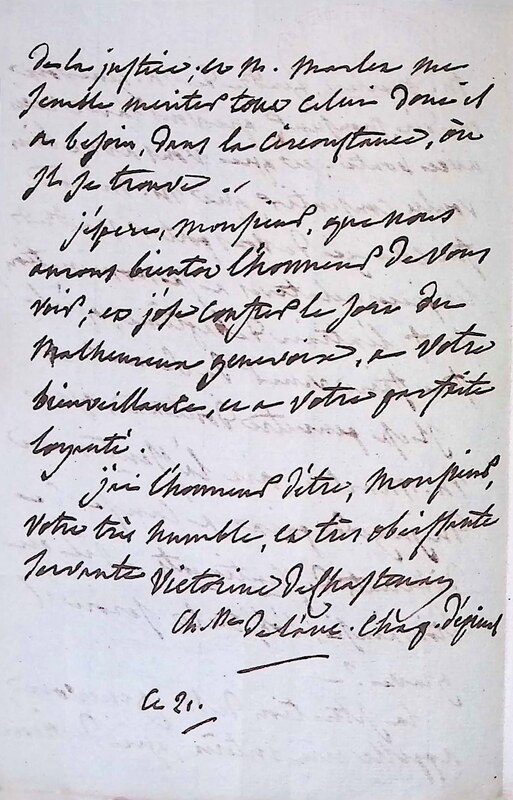 de la justice, et M. Marlea me
semble meriter tout celui dont il
a besoin, dans la circonstance, où
il se trouve ./
j'espere, Monsieur, que nous
aurons bientot l'honneur de vous
voir, et j'ose confier le sort du
malheureux genevois, a votre
bienveillance, et a votre parfaite
loyauté.
j'ai l'honneur d'être, Monsieur,
votre très humble, et très obeissante
servante Victorine de Chastenay
Ch. de l'ave. Chaq. d'épinal
ce 21.